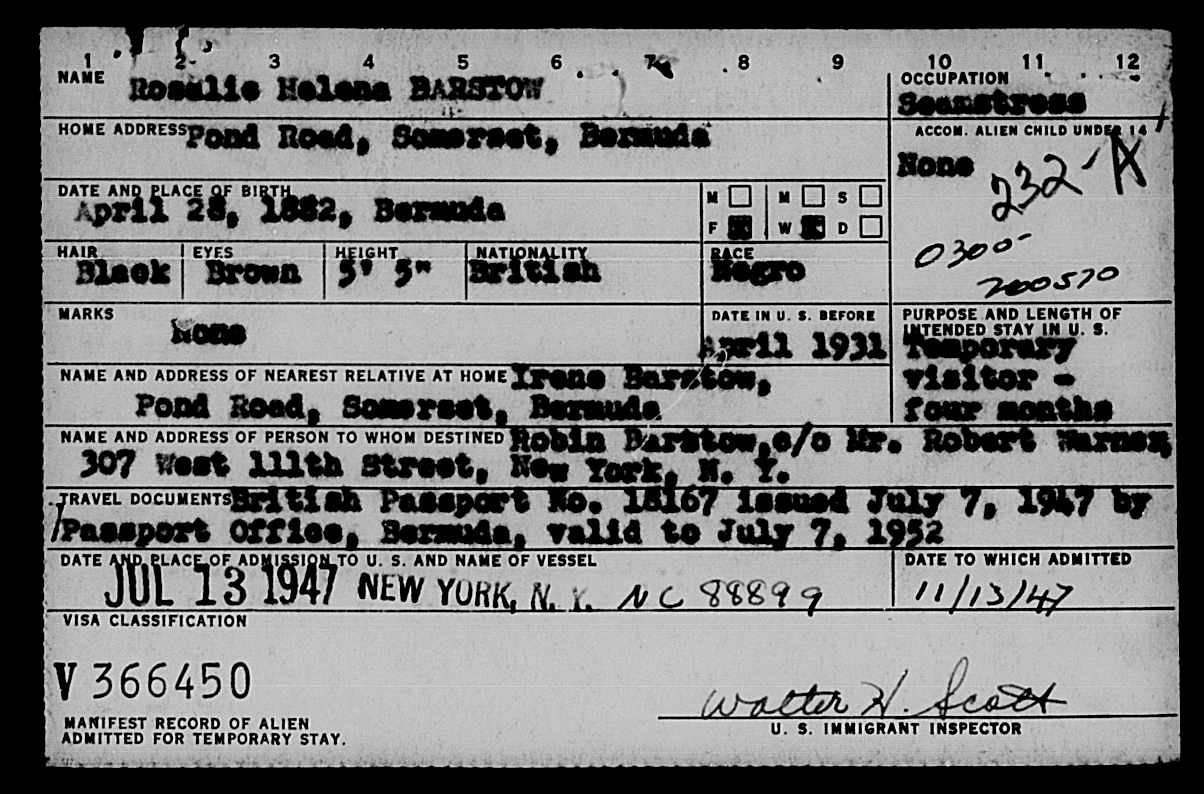 1 2 3 4 5 6 7 8 9 10 11 12
NAME Rosalie Helena BARSTOW
OCCUPATION
Seamstress
HOME ADDRESS Pond Road, Somerset, Bermuda
ACCOM. ALIEN CHILD UNDER 14
None
232-A
DATE AND PLACE OF BIRTH
April 28, 1882, Bermuda
M M S
F W D
0300-
200570
HAIR EYES HEIGHT NATIONALITY RACE
Black Brown 5' 5" British Negro
MARKS
None
DATE IN U. S. BEFORE
April 1931
PURPOSE AND LENGTH OF
INTENDED STAY IN U. S.
Temporary
visitor -
four months
NAME AND ADDRESS OF NEAREST RELATIVE AT HOME Irene Barstow,
Pond Road, Somerset, Bermuda
NAME AND ADDRESS OF PERSON TO WHOM DESTINED Robin Barstow, c/o Mr. Robert Warner,
307 West 111th Street, New York, N. Y.
TRAVEL DOCUMENTS British Passport No. 18167 issued July 7, 1947 by
Passport Office, Bermuda, valid to July 7, 1952
DATE AND PLACE OF ADMISSION TO U. S. AND NAME OF VESSEL
JUL 13 1947 NEW YORK, N. Y. NC 88899
DATE TO WHICH ADMITTED
11/13/47
VISA CLASSIFICATION
V 366450
Walter H. Scott
MANIFEST RECORD OF ALIEN
ADMITTED FOR TEMPORARY STAY.
U. S. IMMIGRANT INSPECTOR